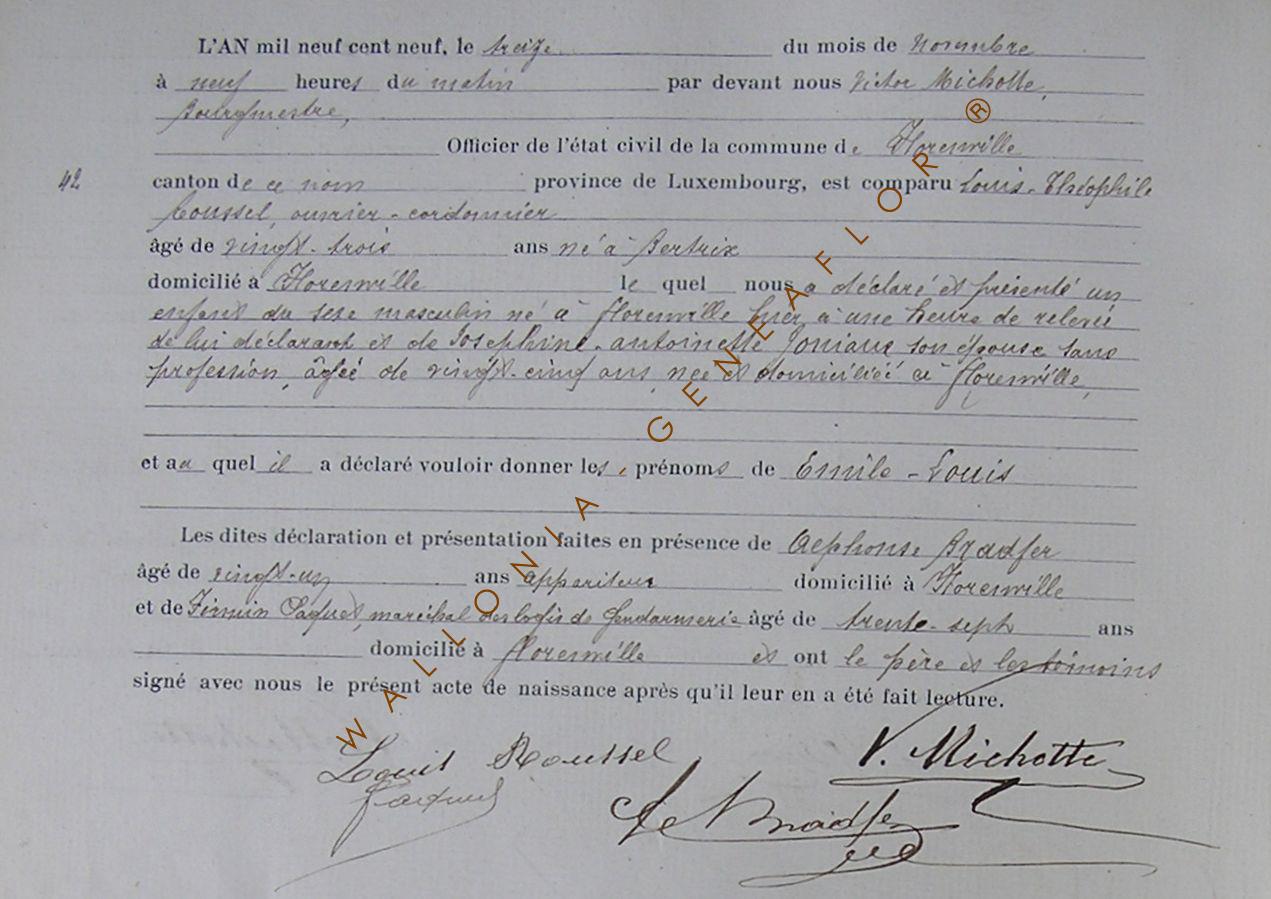 L'AN mil neuf cent neuf, le treize du mois de Novembre
à neuf heures du matin par devant nous Victor Michotte,
Bourgmestre,
Officier de l'état civil de la commune de Florenville
42 canton de ce nom province de Luxembourg, est comparu Louis-Théophile
Roussel, ouvrier-cordonnier
âgé de vingt-trois ans né à Bertrix
domicilié à Florenville le quel nous a déclaré et présenté un
enfant du sexe masculin né à Florenville hier à une heure de relevée
de lui déclarant et de Joséphine-antoinette Joniaux son épouse sans
profession, âgée de vingt-cinq ans, née et domiciliée à Florenville,
et au quel il a déclaré vouloir donner les prénoms de Emile-Louis
Les dites déclaration et présentation faites en présence de Alphonse Bradfer
âgé de vingt-un ans appariteur domicilié à Florenville
et de Firmin Jaques, maréchal des logis de gendarmerie âgé de trente-sept ans
domicilié à Florenville et ont le père et les témoins
signé avec nous le présent acte de naissance après qu'il leur en a été fait lecture.
Louis Roussel V. Michotte
Bradfer
WALLONIA GENEAFLOR ®